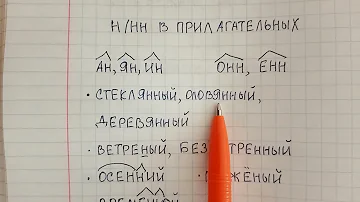 Н/НН В ПРИЛАГАТЕЛЬНЫХ
АН, ЯН, ИН ОНН, ЕНН
• СТЕКЛЯННЫЙ, ОЛОВЯННЫЙ,
ДЕРЕВЯННЫЙ
• ВЕТРЕНЫЙ,
• ОСЕННИЙ •